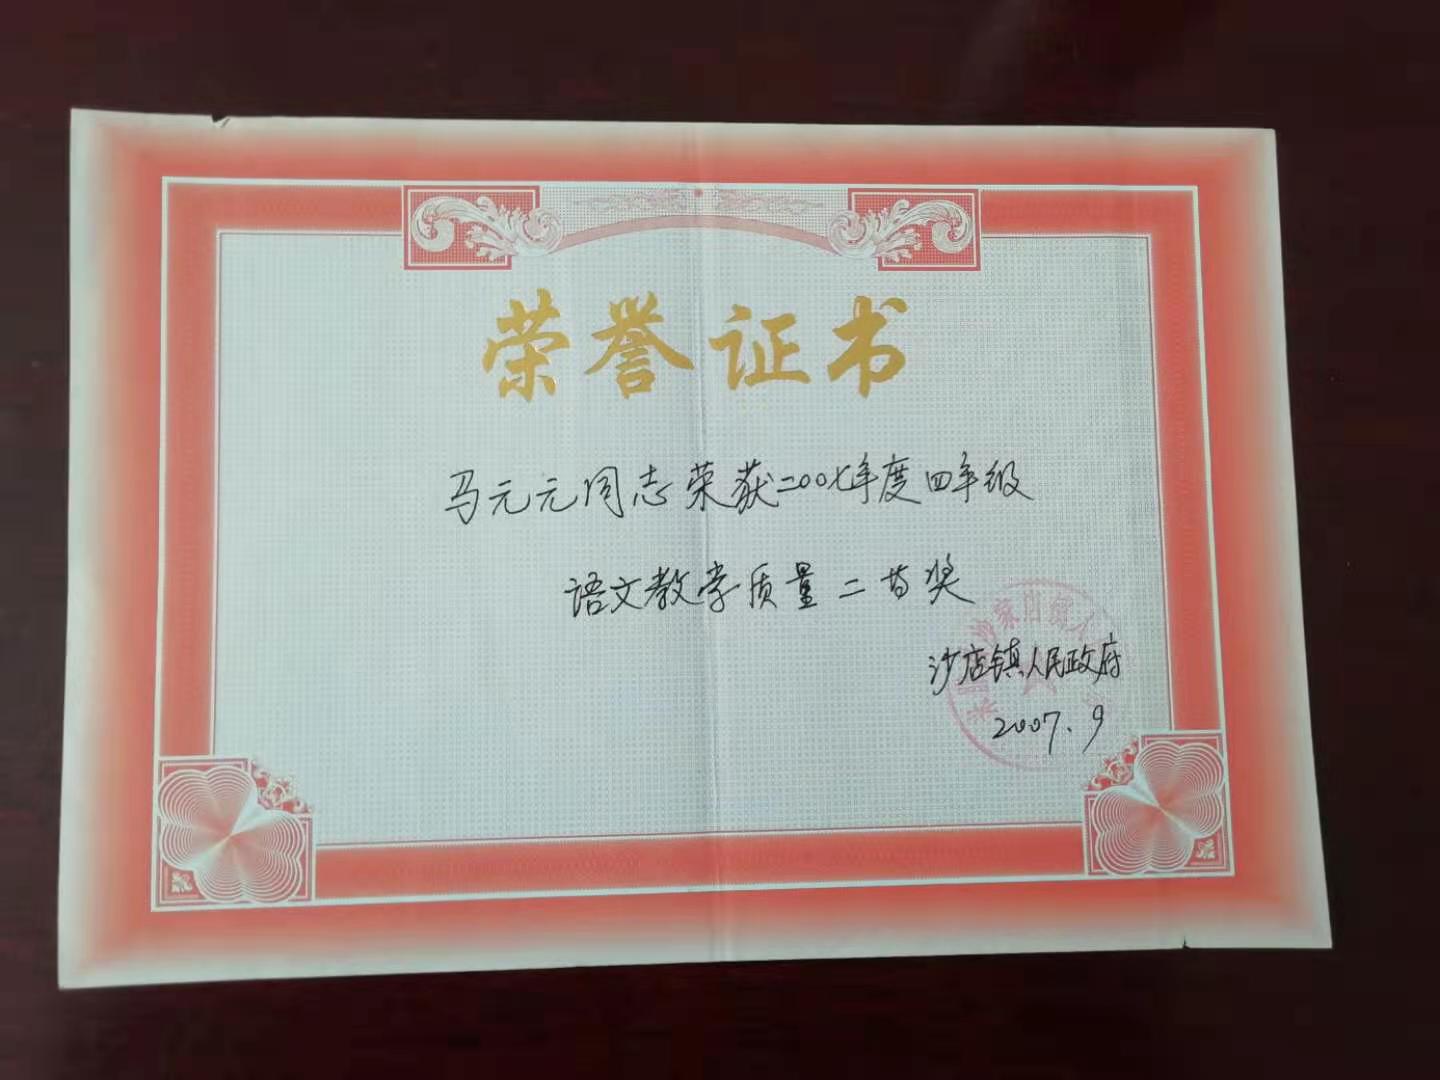 荣誉证书
马元元同志荣获二〇〇七年度四年级
语文教学质量二等奖
沙店镇人民政府
2007.9